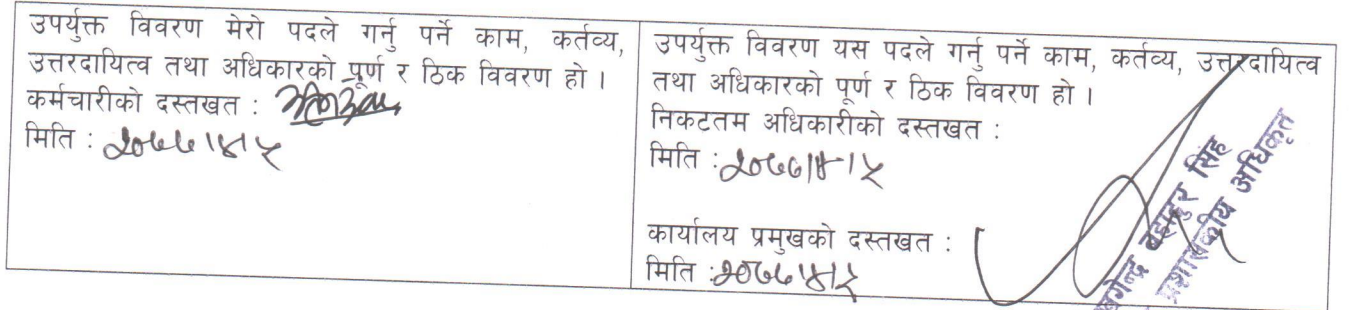 उपर्युक्त विवरण मेरो पदले गर्नु पर्ने काम, कर्तव्य,
उत्तरदायित्व तथा अधिकारको पूर्ण र ठिक विवरण हो ।
कर्मचारीको दस्तखत :
मिति : २०७७।४।५
उपर्युक्त विवरण यस पदले गर्नु पर्ने काम, कर्तव्य, उत्तरदायित्व
तथा अधिकारको पूर्ण र ठिक विवरण हो ।
निकटतम अधिकारीको दस्तखत :
मिति : २०७७।४।५
कार्यालय प्रमुखको दस्तखत :
मिति : २०७७।४।५
खगेन्द्र बहादुर सिंह
प्रशासकीय अधिकृत